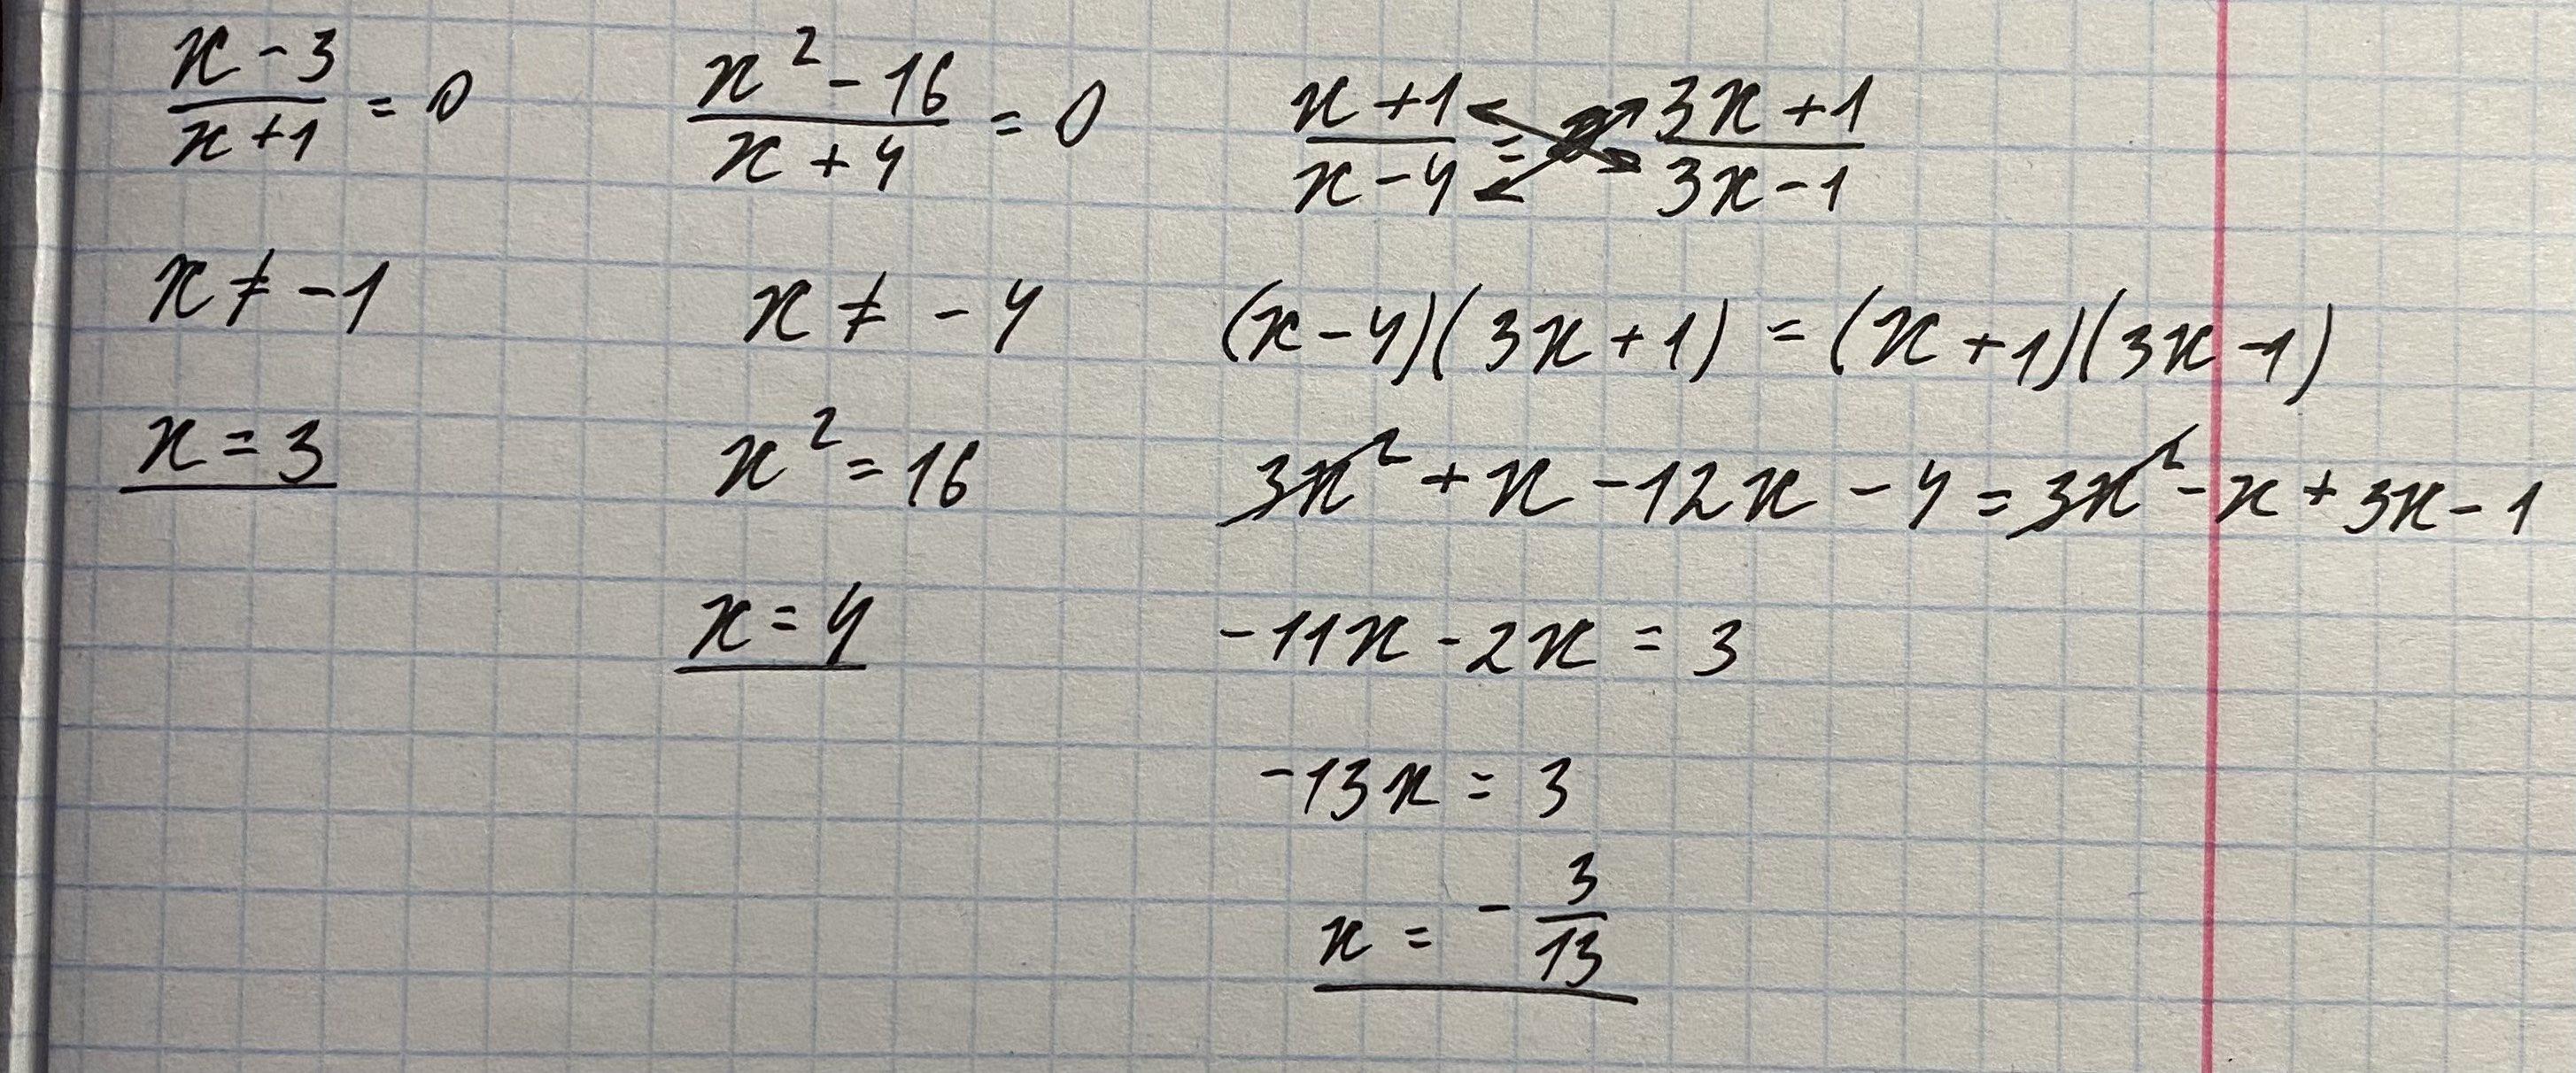 x-3/x+1 = 0
x ≠ -1
x = 3
x²-16/x+4 = 0
x ≠ -4
x² = 16
x = 4
x+1/x-4 = 3x+1/3x-1
(x-4)(3x+1) = (x+1)(3x-1)
3x² + x - 12x - 4 = 3x² - x + 3x - 1
-11x - 2x = 3
-13x = 3
x = - 3/13